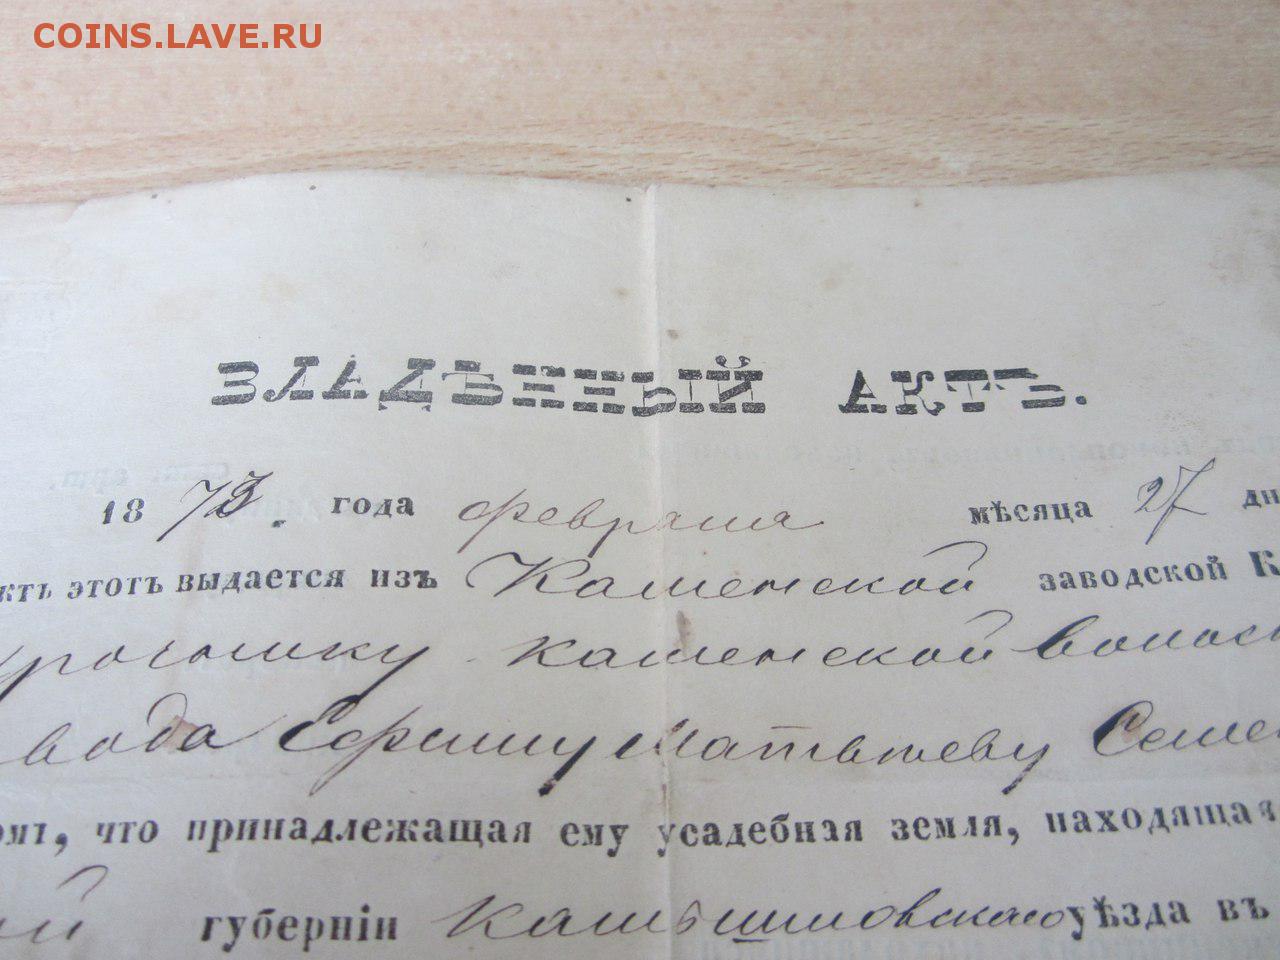 COINS.LAVE.RU
ВЛАДѢННЫЙ АКТЪ.
18 73. года февраля мѣсяца 27 дн
ктъ этотъ выдается изъ Каменской заводской К
Каменской волос
вода Ефиму Матвѣеву Семе
омъ, что принадлежащая ему усадебная земля, находящая
ой губерніи Камышловскаго уѣзда въ